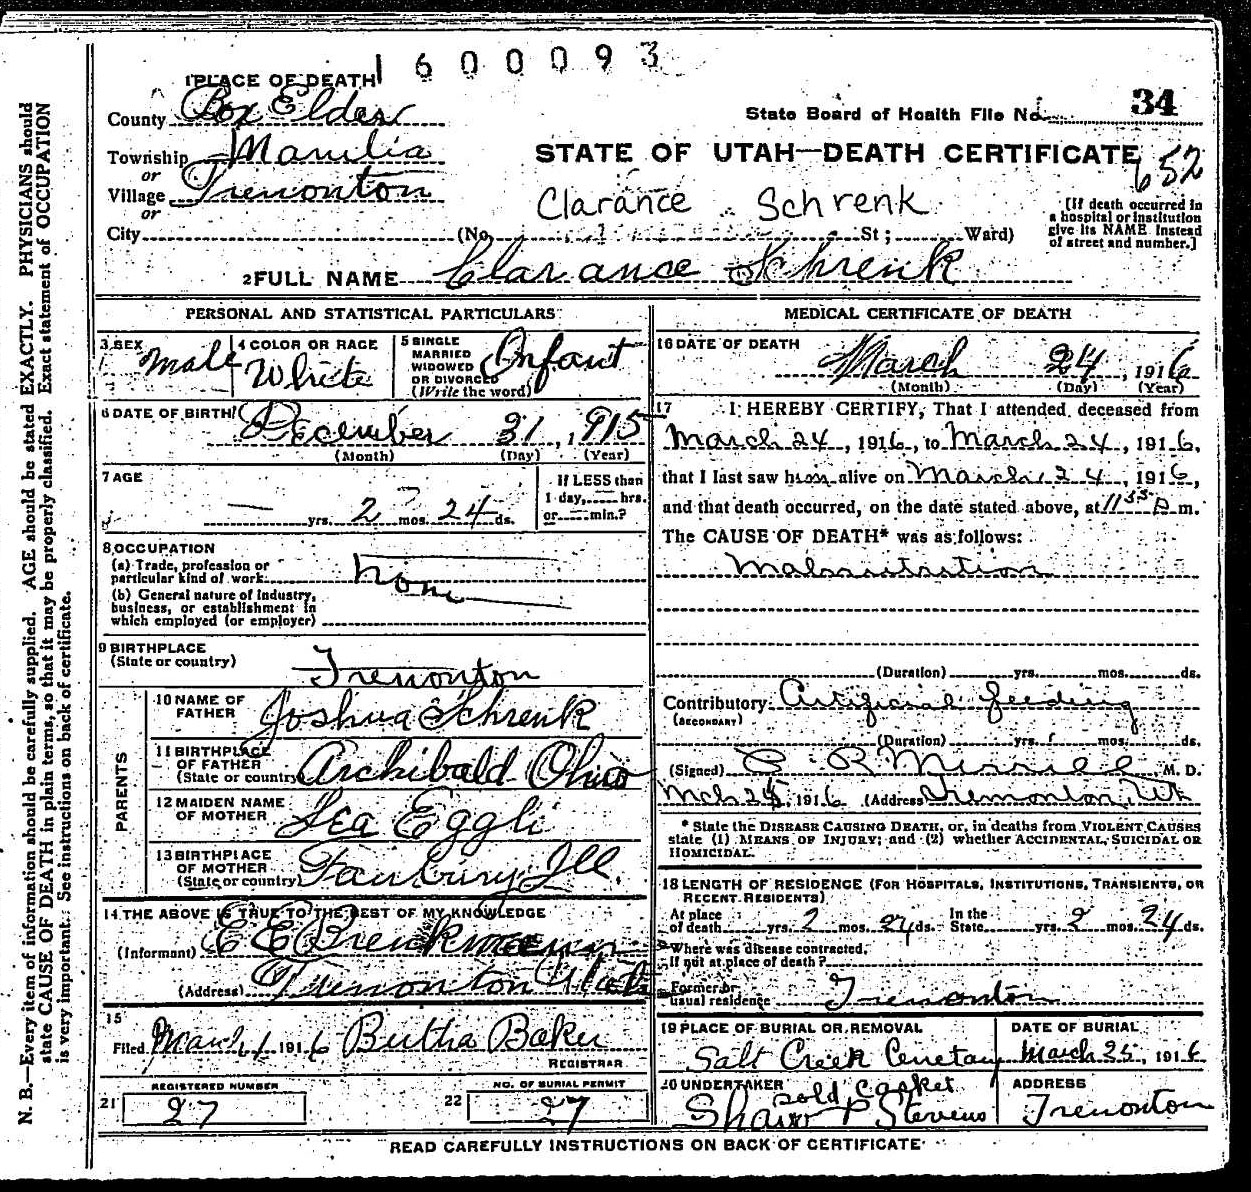 1600093
1 PLACE OF DEATH
County Box Elder
State Board of Health File No. 34
Township Manilia
STATE OF UTAH—DEATH CERTIFICATE
652
or
Village Tremonton
or
Clarance Schrenk
[If death occurred in a hospital or institution give its NAME instead of street and number.]
City (No. St; Ward)
2 FULL NAME Clarance Schrenk
PERSONAL AND STATISTICAL PARTICULARS
3 SEX Male
4 COLOR OR RACE White
5 SINGLE MARRIED WIDOWED OR DIVORCED (Write the word) Infant
6 DATE OF BIRTH December 31, 1915
(Month) (Day) (Year)
7 AGE — yrs. 2 mos. 24 ds.
If LESS than 1 day, — hrs. or — min.?
8 OCCUPATION
(a) Trade, profession or particular kind of work None
(b) General nature of industry, business, or establishment in which employed (or employer)
9 BIRTHPLACE (State or country) Tremonton
PARENTS
10 NAME OF FATHER Joshua Schrenk
11 BIRTHPLACE OF FATHER (State or country) Archibald Ohio
12 MAIDEN NAME OF MOTHER Lea Eggli
13 BIRTHPLACE OF MOTHER (State or country) Fairbury, Ill.
14 THE ABOVE IS TRUE TO THE BEST OF MY KNOWLEDGE
(Informant) E E
(Address) Tremonton Utah
15
Filed March 1916 Bertha Baker
REGISTRAR
REGISTERED NUMBER
21 27
NO. OF BURIAL PERMIT
22 27
MEDICAL CERTIFICATE OF DEATH
16 DATE OF DEATH March 24, 1916
(Month) (Day) (Year)
17 I HEREBY CERTIFY, That I attended deceased from
March 24, 1916, to March 24, 1916,
that I last saw him alive on March 24, 1916,
and that death occurred, on the date stated above, at 11 55 m.
The CAUSE OF DEATH* was as follows:
Malnutrition
(Duration) yrs. mos. ds.
Contributory Artificial feeding
(SECONDARY)
(Duration) yrs. mos. ds.
(Signed) R Merrill M. D.
Mch 25, 1916 (Address) Tremonton, Ut
* State the DISEASE CAUSING DEATH, or, in deaths from VIOLENT CAUSES
state (1) MEANS OF INJURY; and (2) whether ACCIDENTAL, SUICIDAL OR
HOMICIDAL.
18 LENGTH OF RESIDENCE (FOR HOSPITALS, INSTITUTIONS, TRANSIENTS, OR
RECENT RESIDENTS)
At place of death yrs. 2 mos. 24 ds. In the State yrs. 2 mos. 24 ds.
Where was disease contracted,
If not at place of death?
Former or usual residence Tremonton
19 PLACE OF BURIAL OR REMOVAL
Salt Creek Cemetary
DATE OF BURIAL
March 25, 1916
20 UNDERTAKER
sold casket
Stevens
ADDRESS
Tremonton
READ CAREFULLY INSTRUCTIONS ON BACK OF CERTIFICATE
N. B.—Every item of information should be carefully supplied. AGE should be stated EXACTLY. PHYSICIANS should
state CAUSE OF DEATH in plain terms, so that it may be properly classified. Exact statement of OCCUPATION
is very important. See instructions on back of certificate.